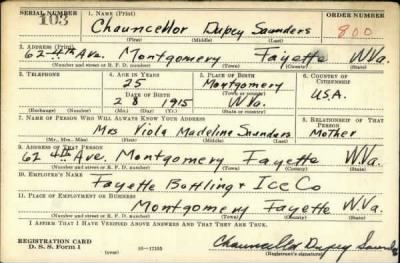 SERIAL NUMBER 1. NAME (Print) ORDER NUMBER
103 Chauncellor Dupey Saunders 800
(First) (Middle) (Last)
2. ADDRESS (Print)
62 4th Ave. Montgomery Fayette W.Va.
(Number and street or R. F. D. number) (Town) (County) (State)
3. TELEPHONE 4. AGE IN YEARS 5. PLACE OF BIRTH 6. COUNTRY OF CITIZENSHIP
25 Montgomery
DATE OF BIRTH (Town or county) U.S.A.
2 8 1915 W.Va.
(Exchange) (Number) (Mo.) (Day) (Yr.) (State or country)
7. NAME OF PERSON WHO WILL ALWAYS KNOW YOUR ADDRESS 8. RELATIONSHIP OF THAT PERSON
Mrs Viola Madeline Saunders Mother
(Mr., Mrs., Miss) (First) (Middle) (Last)
9. ADDRESS OF THAT PERSON
62 4th Ave. Montgomery Fayette W.Va.
(Number and street or R. F. D. number) (Town) (County) (State)
10. EMPLOYER'S NAME
Fayette Bottling & Ice Co
11. PLACE OF EMPLOYMENT OR BUSINESS
Montgomery Fayette W.Va.
(Number and street or R. F. D. number) (Town) (County) (State)
I AFFIRM THAT I HAVE VERIFIED ABOVE ANSWERS AND THAT THEY ARE TRUE.
REGISTRATION CARD Chauncellor Dupey Saunders
D. S. S. Form 1 (over) 16—17105 (Registrant's signature)